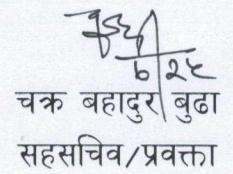 ८/२८
चक्र बहादुर बुढा
सहसचिव/प्रवक्ता